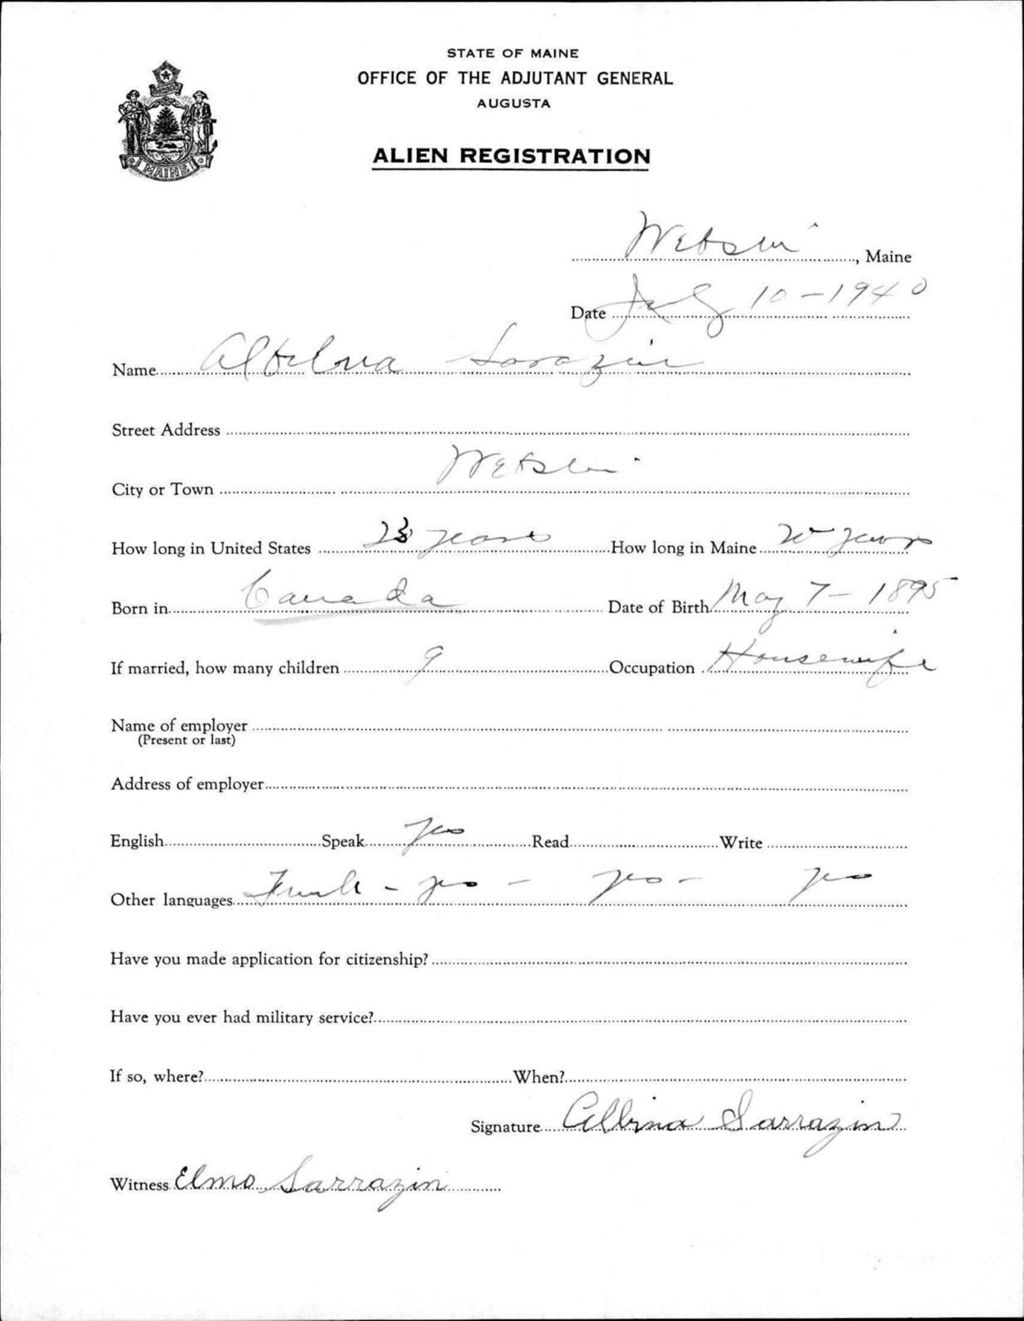 STATE OF MAINE
OFFICE OF THE ADJUTANT GENERAL
AUGUSTA
ALIEN REGISTRATION
MAINE
Webster, Maine
Date July 10-1940
Name Sarazin
Street Address
City or Town Webster
How long in United States years How long in Maine years
Born in Canada Date of Birth May 7-1895
If married, how many children 9 Occupation Housewife
Name of employer
(Present or last)
Address of employer
English Speak yes Read Write
Other languages French - yes - yes - yes
Have you made application for citizenship?
Have you ever had military service?
If so, where? When?
Signature Albina Sarrazin
Witness Elmo Sarrazin